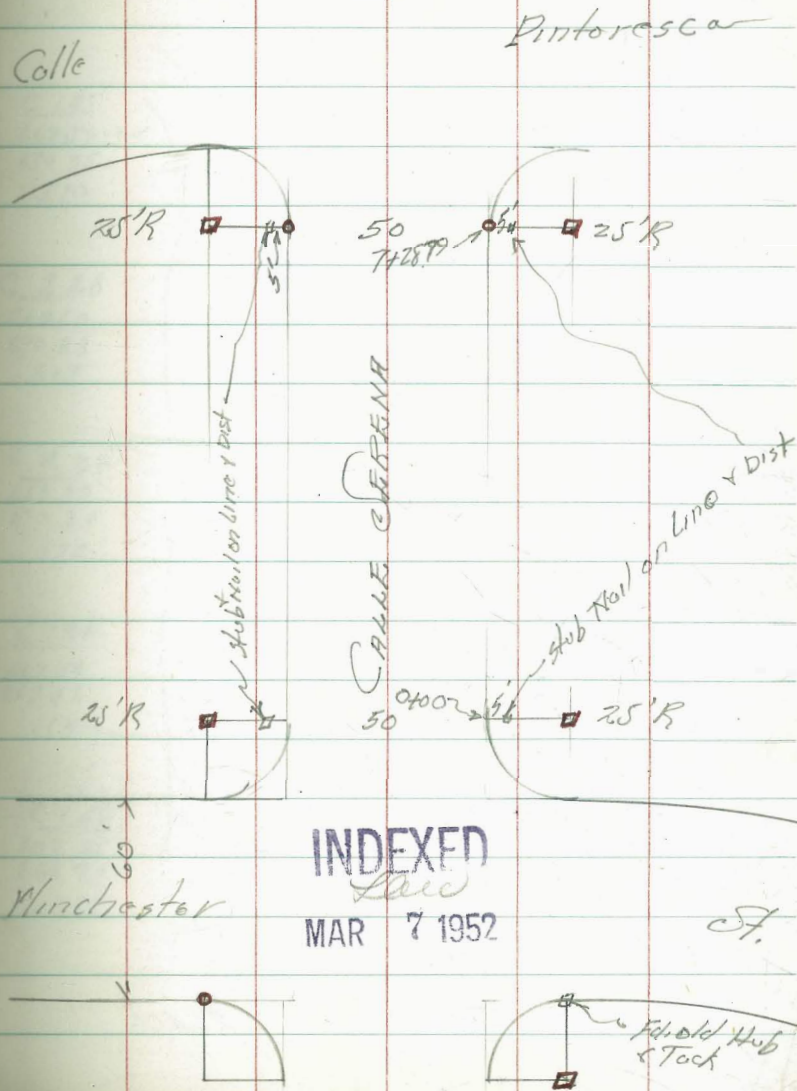 Calle Pintoresca
25'R 5' 50 5' 25'R
7+28.99
Stub Nail on Line & Dist
CALLE SERENA
Stub Nail on Line & Dist
25'R 50 0+00 5' 25'R
60'
INDEXED
MAR 7 1952
Winchester St.
Fd. old Hub
& Tack